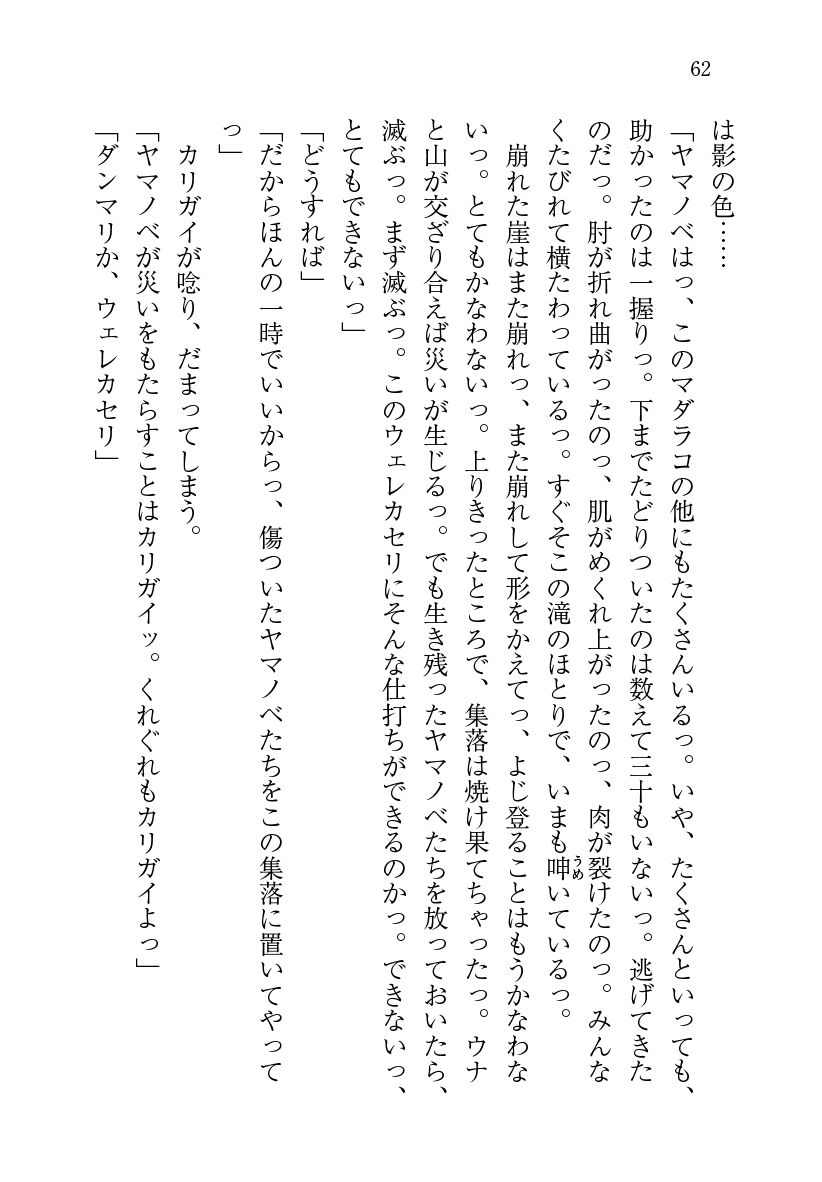 62
は影の色……
「ヤマノベはっ、このマダラコの他にもたくさんいるっ。いや、たくさんといっても、
助かったのは一握りっ。下までたどりついたのは数えて三十もいないっ。逃げてきた
のだっ。肘が折れ曲がったのっ、肌がめくれ上がったのっ、肉が裂けたのっ。みんな
くたびれて横たわっているっ。すぐそこの滝のほとりで、いまも呻いているっ。
うめ
　崩れた崖はまた崩れっ、また崩れして形をかえてっ、よじ登ることはもうかなわな
いっ。とてもかなわないっ。上りきったところで、集落は焼け果てちゃったっ。ウナ
と山が交ざり合えば災いが生じるっ。でも生き残ったヤマノベたちを放っておいたら、
滅ぶっ。まず滅ぶっ。このウェレカセリにそんな仕打ちができるのかっ。できないっ、
とてもできないっ」
「どうすれば」
「だからほんの一時でいいからっ、傷ついたヤマノベたちをこの集落に置いてやって
っ」
　カリガイが唸り、だまってしまう。
「ヤマノベが災いをもたらすことはカリガイッ。くれぐれもカリガイよっ」
「ダンマリか、ウェレカセリ」